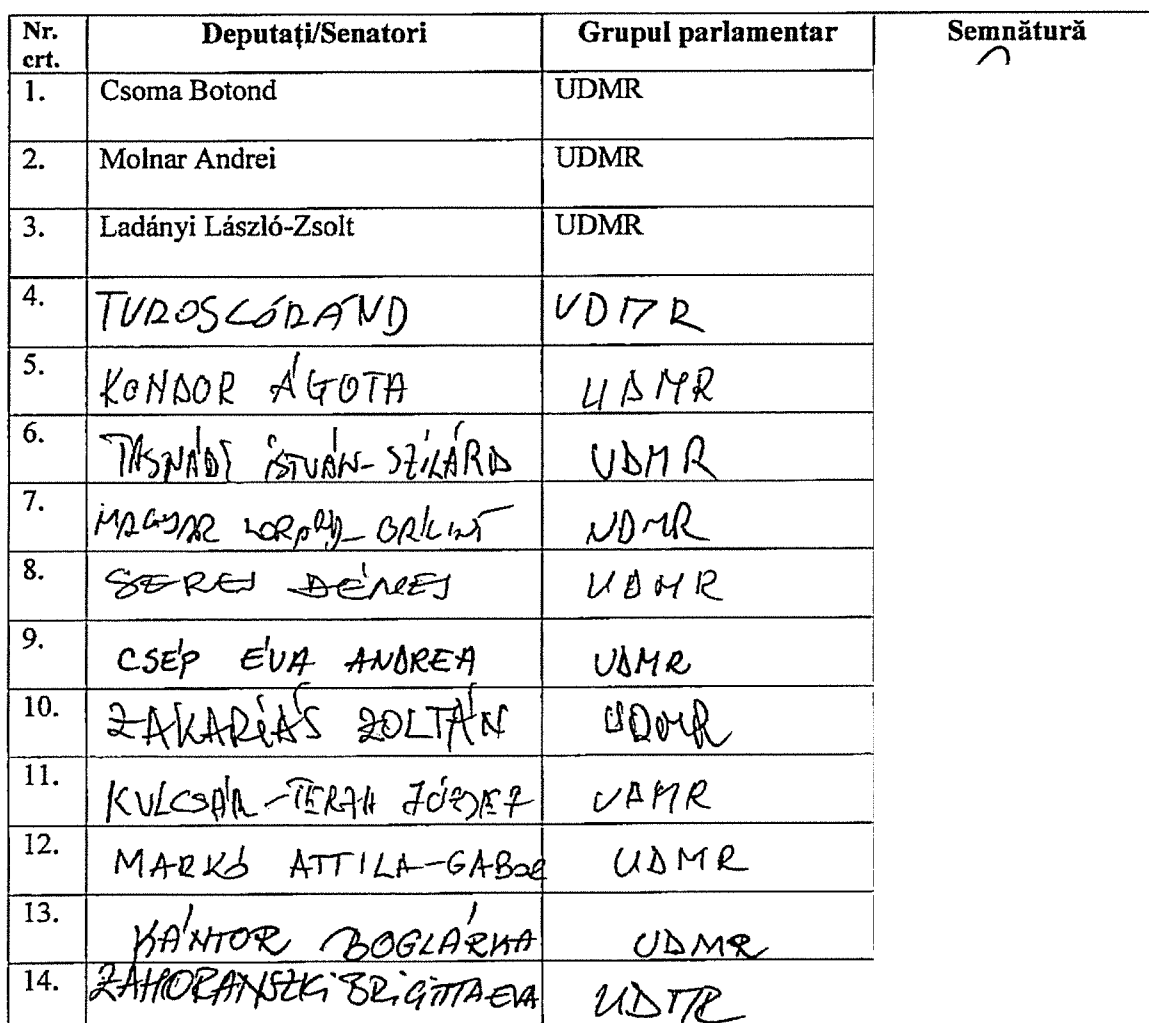 Nr. crt. Deputați/Senatori Grupul parlamentar Semnătură
1. Csoma Botond UDMR
2. Molnar Andrei UDMR
3. Ladányi László-Zsolt UDMR
4. TUROS LÓRÁND UDMR
5. KONDOR ÁGOTA UDMR
6. TASNÁDI ISTVÁN-SZILÁRD UDMR
7. MAGYAR LORÁND-BÁLINT UDMR
8. SERES DÉNES UDMR
9. CSÉP ÉVA ANDREA UDMR
10. ZAKARIÁS ZOLTÁN UDMR
11. KULCSÁR-TERZA JÓZSEF UDMR
12. MARKÓ ATTILA-GABOR UDMR
13. KÁNTOR BOGLÁRKA UDMR
14. ZAHORANSZKI BRIGITTA EVA UDMR